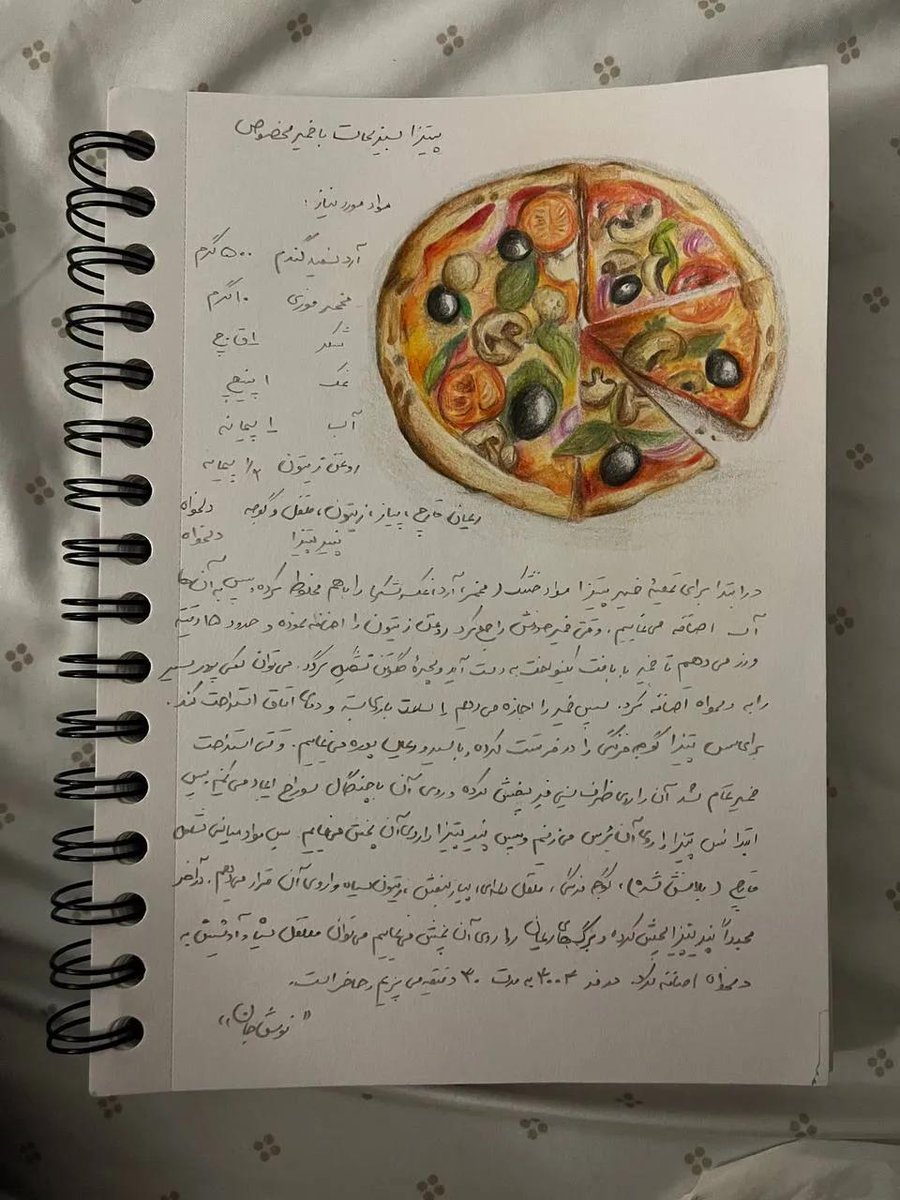 پیتزا سبزیجات با خمیر مخصوص
مواد مورد نیاز :
آرد سفید گندم ۵۰۰ گرم
مخمر فوری ۱۰ گرم
شکر ۱ ق چ
نمک ۱ پنج
آب ۱ پیمانه
روغن زیتون ۱/۲ پیمانه
ریحان، قارچ، پیاز، زیتون، فلفل و گوجه دلخواه
پنیر پیتزا دلخواه
در ابتدا برای تهیهٔ خمیر پیتزا مواد خشک (مخمر، آرد، نمک، شکر) را با هم مخلوط کرده، سپس به آن‌ها
آب اضافه می‌نماییم. وقتی خمیر خودش را جمع کرد روغن زیتون را اضافه نموده و حدود ۱۵ دقیقه
ورز می‌دهیم تا خمیر با بافت یکنواخت به دست آید و زنجیرهٔ گلوتن تشکیل گردد. می‌توان کمی پودر سیر
را به دلخواه اضافه کرد. سپس خمیر را اجازه می‌دهیم ۱ ساعت با روی بسته و دمای اتاق استراحت کند.
برای سس پیتزا گوجه فرنگی را در فر تست کرده، با سیر و ریحان پوره می‌نماییم. وقتی استراحت
خمیر تمام شد آن را روی ظرف سینی فر پخش کرده و روی آن با چنگال سوراخ ایجاد می‌کنیم سپس
ابتدا سس پیتزا را روی آن برس می‌زنیم و سپس پنیر پیتزا را روی آن پخش می‌نماییم. سپس مواد میانی شامل
قارچ (بلانش شده)، گوجه فرنگی، فلفل دلمه‌ای، پیاز بنفش، زیتون سیاه را روی آن قرار می‌دهیم. در آخر
مجدداً پنیر پیتزا پخش کرده و برگ‌های ریحان را روی آن پخش می‌نماییم می‌توان فلفل سیاه و آویشن به
دلخواه اضافه کرد. در فر به مدت ۳۰ دقیقه می‌پزیم و حاضر است.
"نوش جان"